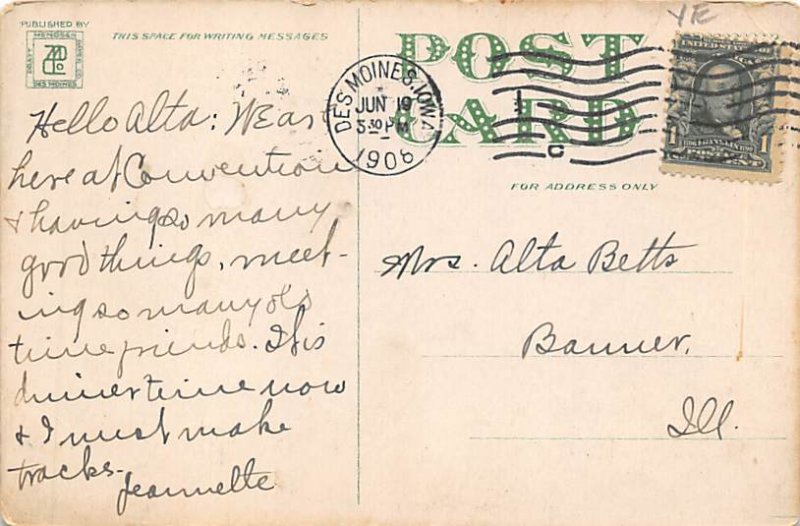 PUBLISHED BY
DES MOINES
THIS SPACE FOR WRITING MESSAGES
POST
CARD
DES MOINES, IOWA
JUN 19
3 30 PM
1908
C
YE
UNITED STATES
1
1
FOR ADDRESS ONLY
Hello Alta: We are
here at Convention
& having so many
good things, meet-
ing so many old
time friends. It is
dinner time now
& I must make
tracks.
Jeannette
Mrs. Alta Betts
Banner,
Ill.